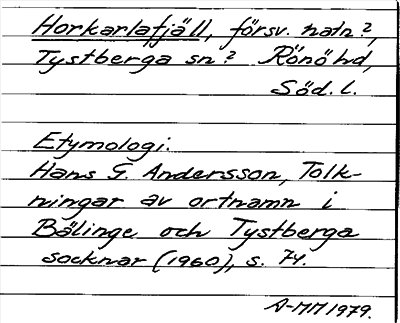 Horkarlafjäll, försv. natn?,
Tystberga sn? Rönö hd,
Söd. l.
Etymologi:
Hans G. Andersson, Tolk-
ningar av ortnamn i
Bälinge och Tystberga
socknar (1960), s. 74.
A-MM 1979.